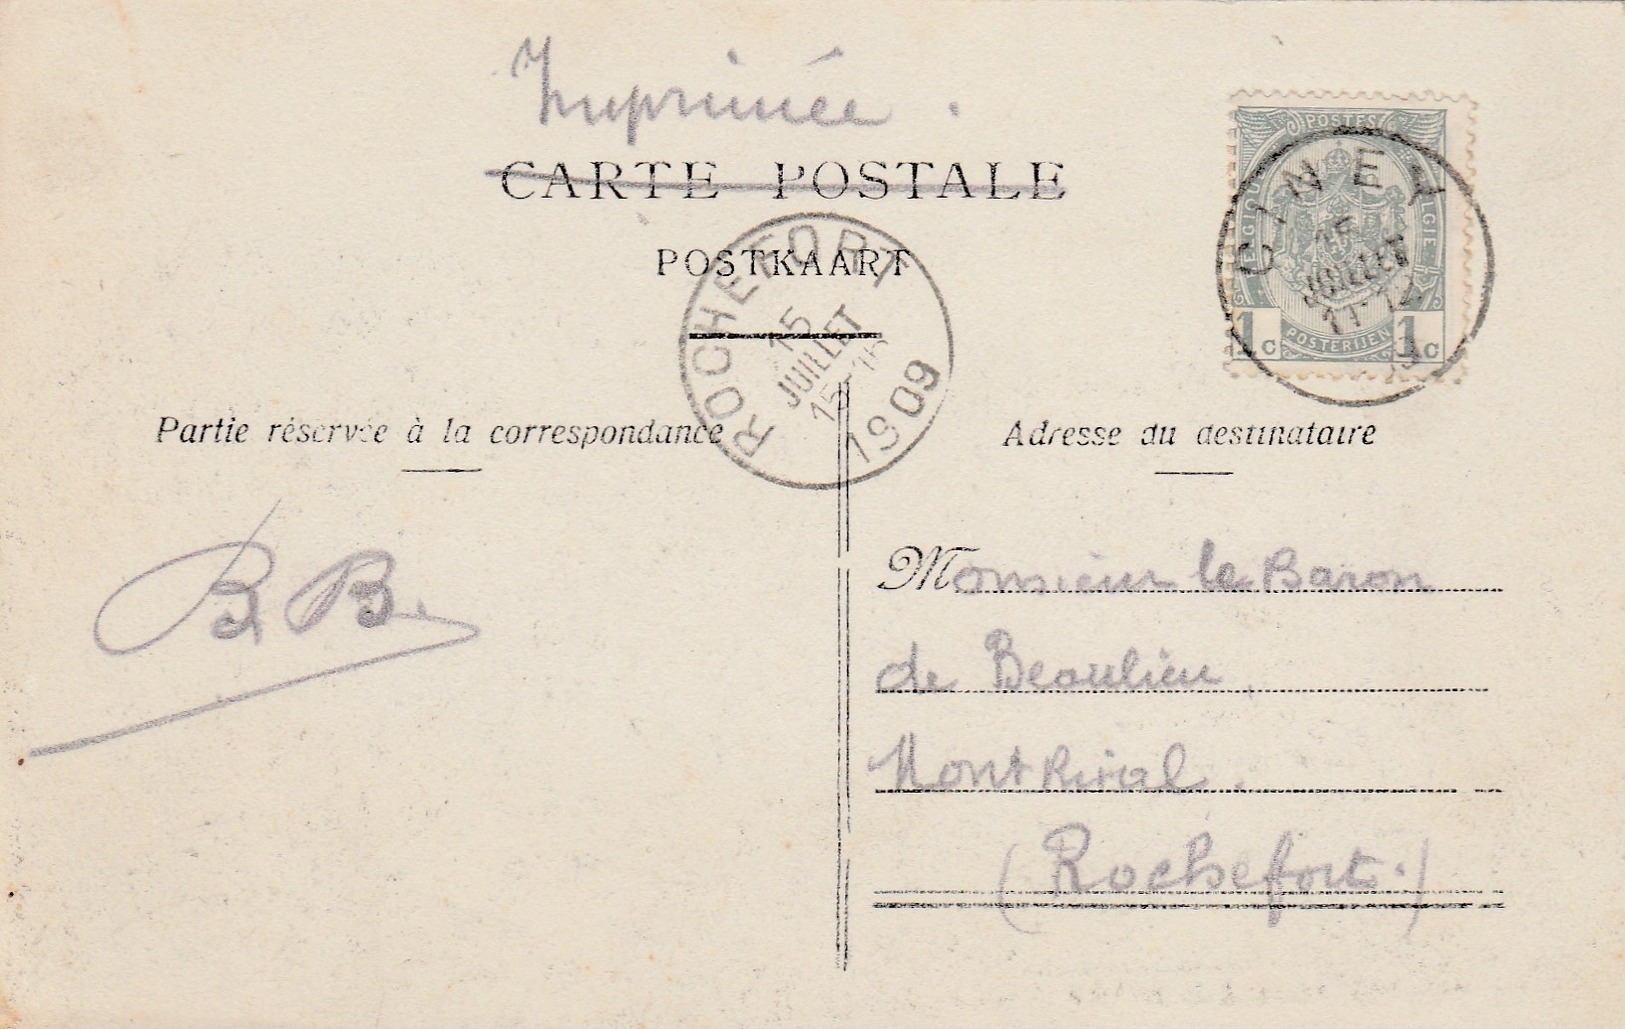 Imprimée.
CARTE POSTALE
POSTKAART
ROCHEFORT
15
JUILLET
15-16
1909
POSTES
BELGIQUE
BELGIE
1c
POSTERIJEN
1c
CINEY
15
JUILLET
11-12
Partie réservée à la correspondance
Adresse du destinataire
B B.
Monsieur le Baron
de Beaulieu,
Mont Rival.
(Rochefort.)